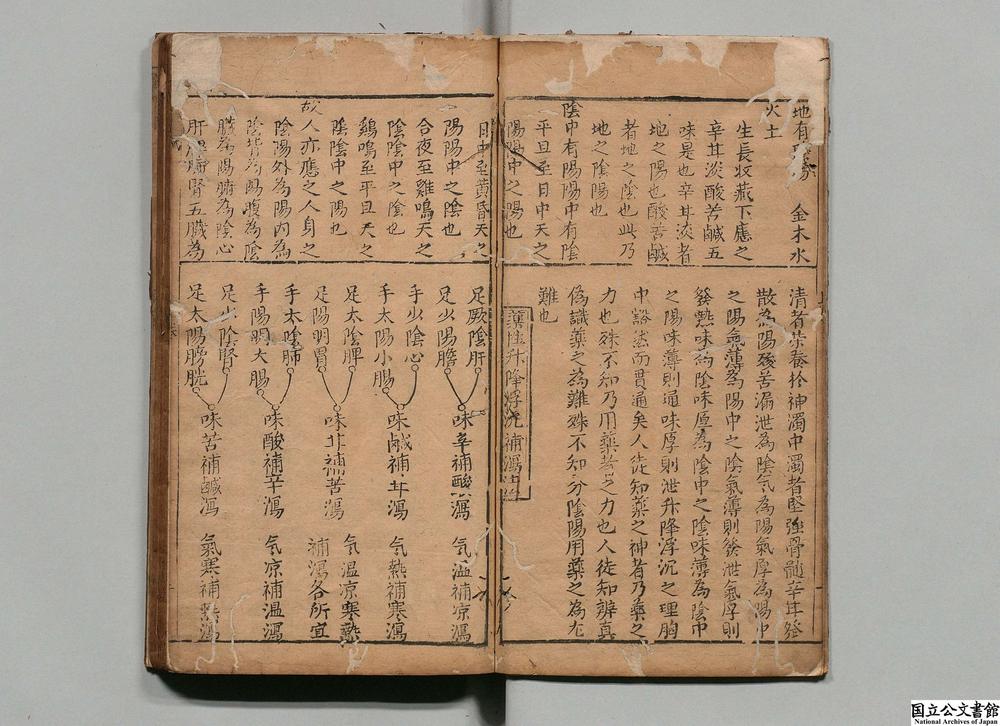 地有陰陽　金木水
火土
生長收藏下應之
辛甘淡酸苦鹹五
味是也辛甘淡者
地之陽也酸苦鹹
者地之陰也此乃
地之陰陽也
陰中有陽陽中有陰
平旦至日中天之
陽陽中之陽也
清者栄養於神濁中濁者堅強骨髓辛甘發
散為陽酸苦漏泄為陰气為陽氣厚為陽中
之陽氣薄為陽中之陰氣薄則發泄氣厚則
發熱味為陰味厚為陰中之陰味薄為陰中
之陽味薄則通味厚則泄升降浮沉之理胸
中豁然而貫通矣人徒知藥之神者乃藥之
力也殊不知乃用藥者之力也人徒知辨真
偽識藥之為難殊不知分陰陽用藥之為尤
難也
藥性升降浮沉補瀉法
日中至黃昏天之
陽陽中之陰也
合夜至雞鳴天之
陰陰中之陰也
鷄鳴至平旦天之
陰陰中之陽也
故人亦應之人身之
陰陽外為陽内為
陰背為陽腹為陰
臟為陽腑為陰心
肝脾肺腎五臟為
足厥陰肝
足少陽膽
味辛補酸瀉　气温補凉瀉
手少陰心
手太陽小腸
味鹹補甘瀉　气熱補寒瀉
足太陰脾
足陽明胃
味甘補苦瀉　气温凉寒熱
補瀉各所宜
手太陰肺
手陽明大腸
味酸補辛瀉　气凉補温瀉
足少陰腎
足太陽膀胱
味苦補鹹瀉　氣寒補熱瀉
国立公文書館
National Archives of Japan